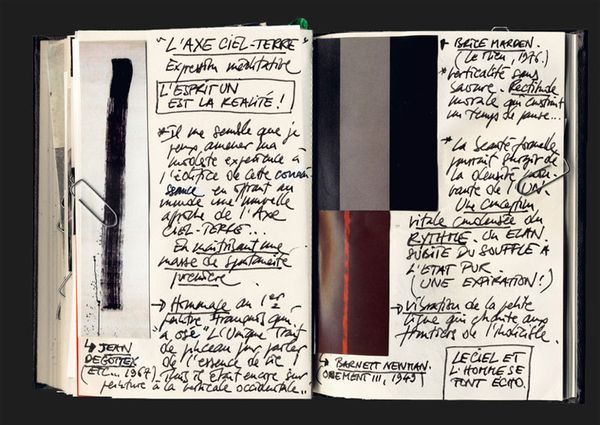 "L'AXE CIEL-TERRE"
Expression méditative
L'ESPRIT UN
EST LA REALITÉ!
*Il me semble que je
peux amener ma
modeste expérience à
l'édifice de cette connais
sance en offrant au
monde une nouvelle
aproche de l'Axe
CIEL-TERRE...
En maîtrisant une
masse de spontanéité
première.
→ Hommage au 1er
peintre Français qui
a osé "L'Unique Trait
de pinceau pour parler
de l'essence de vie
Mais il était encore sur
peinture à la verticale occidentale..
↳ JEAN
DEGOTTEX
(ETC... 1967)
* BRICE MARDEN.
(Le Lien, 1976.)
*Verticalité sans
Rectitude
morale qui
un Temps de pause...
*La beauté formelle
pourrait surgir de
la densité
de l'UN.
Une conception
vitale condensée du
RYTHME. du ELAN.
SUBITE DU SOUFFLE À
L'ETAT PUR.
(UNE EXPIRATION!)
→ Vibration de la petite
ligne qui chante aux
frontières de l'indicible.
↳ BARNETT NEWMAN.
(ONEMENT III, 1949)
LE CIEL ET
L'HOMME SE
FONT ECHO.